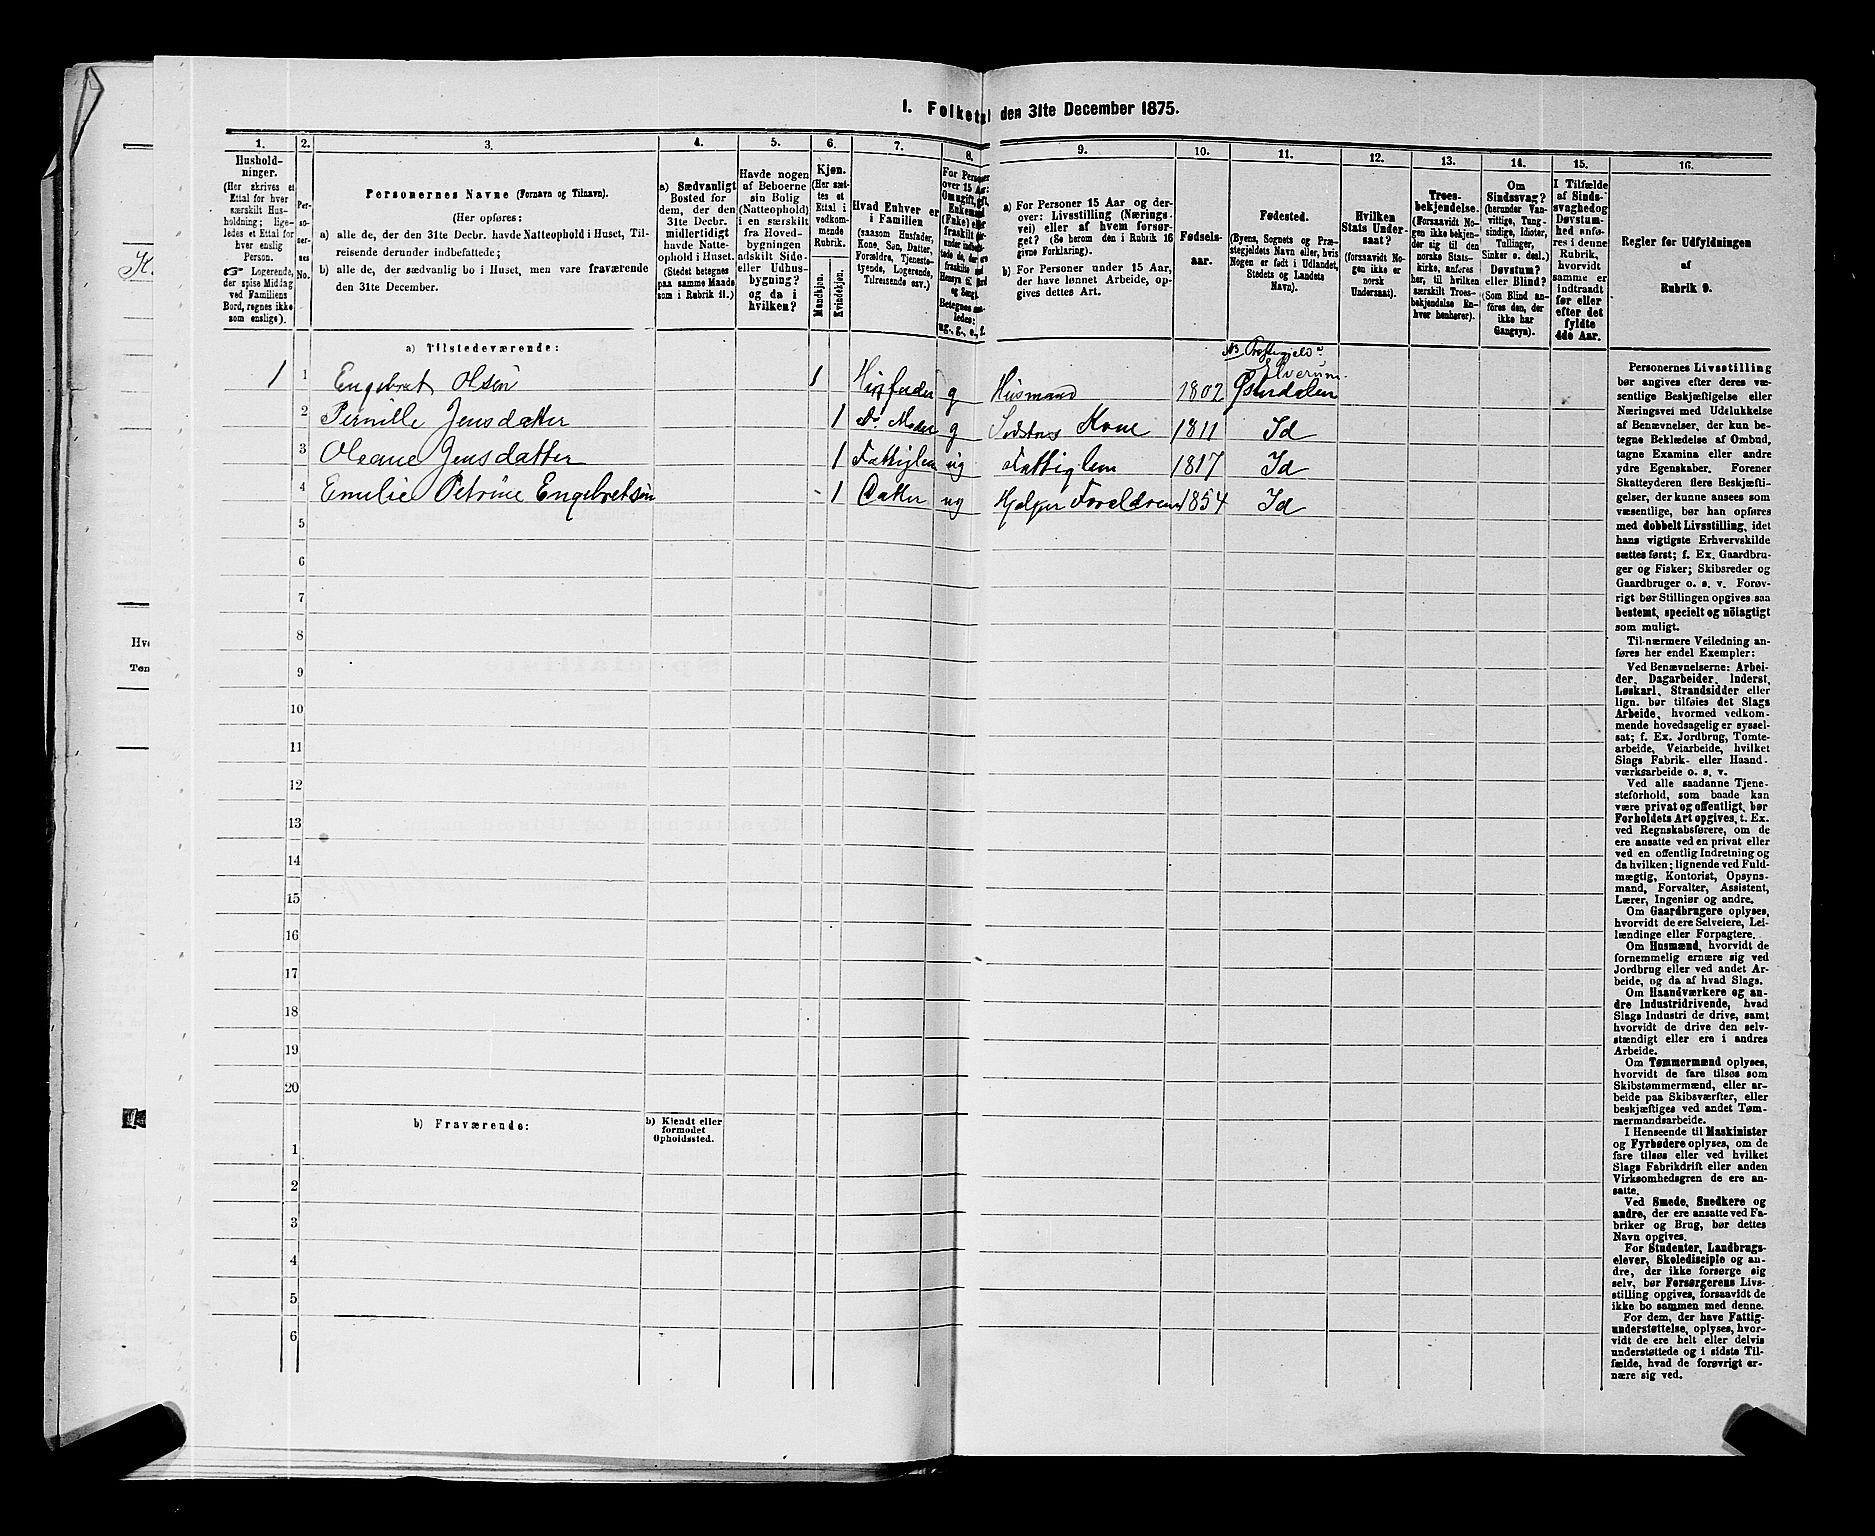 I. Folketal den 31te December 1875.
1. 2. 3. 4. 5. 6. 7. 8. 9. 10. 11. 12. 13. 14. 15. 16.
Hushold-
ninger.
(Her skrives et
Ettal for hver
særskilt Hus-
holdning; lige-
ledes et Ettal for
hver enslig
Person.
☞ Logerende,
der spise Middag
ved Familiens
Bord, regnes ikke
som enslige).
Per-
so-
ner-
nes
No.
Personernes Navne (Fornavn og Tilnavn).
(Her opføres:
a) alle de, der den 31te Decbr. havde Natteophold i Huset, Til-
reisende derunder indbefattede;
b) alle de, der sædvanlig bo i Huset, men vare fraværende
den 31te December.
a) Sædvanligt
Bosted for
dem, der den
31te Decbr.
midlertidigt
havde Natte-
ophold i Huset.
(Stedet betegnes
paa samme Maade
som i Rubrik 11.)
Havde nogen
af Beboerne
sin Bolig
(Natteophold)
i en særskilt
fra Hoved-
bygningen
adskilt Side-
eller Udhus-
bygning?
og da i
hvilken?
Kjøn.
(Her sæt-
tes et
Ettal i
vedkom-
mende
Rubrik.
Mandkjøn.
Kvindekjøn.
Hvad Enhver er
i Familien
(saasom Husfader,
Kone, Søn, Datter,
Forældre, Tjeneste-
tyende, Logerende,
Tilreisende osv.)
For Personer
over 15 Aar:
Omugift, gift,
Enkemand
(Enke) eller
fraskilt
Betegnes saa-
ledes:
ug., g., e., f.
a) For Personer 15 Aar og der-
over: Livsstilling (Nærings-
vei) eller af hvem forsør-
get? (Se herom den i Rubrik 16
givne Forklaring).
b) For Personer under 15 Aar,
der have lønnet Arbeide, op-
gives dettes Art.
Fødsels-
aar.
Fødested.
(Byens, Sognets og Præ-
stegjeldets Navn eller, hvis
Nogen er født i Udlandet,
Stedets og Landets
Navn).
Hvilken
Stats Under-
saat?
(forsaavidt No-
gen ikke er
norsk
Undersaat).
Troes-
bekjendelse.
(Forsaavidt No-
gen ikke bekjen-
der sig til den
norske Stats-
kirke, anføres
her, til hvilken
særskilt Troes-
bekjendelse En-
hver henhører).
Om
Sindssvag?
(herunder Van-
vittige, Tung-
sindige, Idioter,
Tullinger,
Sinker o. desl.)
Døvstum?
eller Blind?
(Som Blind an-
føres den, der
ikke har
Gangsyn).
I Tilfælde
af Sinds-
svaghed og
Døvstum-
hed anfø-
res i denne
Rubrik,
hvorvidt
samme er
indtraadt
før eller
efter det
fyldte
4de Aar.
Regler for Udfyldningen
af
Rubrik 9.
a) Tilstedeværende:
Præstegjeld
Elverum
1 1 Engebret Olsen 1 Husfader g Husmand 1802 Østerdalen
2 Pernille Jensdatter 1 Do Moder g Kone 1811 Id
3 Oleane Jensdatter 1 Fattiglem ug Fattiglem 1817 Id
4 Emelie Petrine Engebretsen 1 Datter ug Hjelper Foreldrene 1854 Id
5
6
7
8
9
10
11
12
13
14
15
16
17
18
19
20
b) Fraværende:
b) Kjendt eller
formodet
Opholdssted.
1
2
3
4
5
6
Personernes Livsstilling
bør angives efter deres væ-
sentlige Beskjæftigelse eller
Næringsvei med Udelukkelse
af Benævnelser, der kun be-
tegne Beklædelse af Ombud,
tagne Examina eller andre
ydre Egenskaber. Forener
Skatteyderen flere Beskjæfti-
gelser, der kunne ansees som
væsentlige, bør han opføres
med dobbelt Livsstilling, idet
hans vigtigste Erhvervskilde
sættes først; f. Ex. Gaardbru-
ger og Fisker; Skibsreder og
Gaardbruger o. s. v. Forøv-
rigt bør Stillingen opgives saa
bestemt, specielt og nöiagtigt
som muligt.
Til nærmere Veiledning an-
føres her endel Exempler:
Ved Benævnelserne: Arbei-
der, Dagarbeider, Inderst,
Løskarl, Strandsidder eller
lign. bør tilføies det Slags
Arbeide, hvormed vedkom-
mende hovedsagelig er syssel-
sat; f. Ex. Jordbrug, Tomte-
arbeide, Veiarbeide, hvilket
Slags Fabrik- eller Haand-
værksarbeide o. s. v.
Ved alle saadanne Tjene-
steforhold, som baade kan
være privat og offentligt, bør
Forholdets Art opgives, t. Ex.
ved Regnskabsførere, om de
ere ansatte ved en privat eller
ved en offentlig Indretning og
da hvilken; lignende ved Fuld-
mægtig, Kontorist, Opsyns-
mand, Forvalter, Assistent,
Lærer, Ingeniør og andre.
Om Gaardbrugere oplyses,
hvorvidt de ere Selveiere, Lei-
lændinge eller Forpagtere.
Om Husmænd, hvorvidt de
fornemmelig ernære sig ved
Jordbrug eller ved andet Ar-
beide, og da af hvad Slags.
Om Haandværkere og an-
dre Industridrivende, hvad
Slags Industri de drive, samt
hvorvidt de drive den selv-
stændigt eller ere i andres
Arbeide.
Om Tømmermænd oplyses,
hvorvidt de fare tilsøs som
Skibstømmermænd, eller ar-
beide paa Skibsværfter, eller
beskjæftiges ved andet Tøm-
mermandsarbeide.
I Henseende til Maskinister
og Fyrbødere oplyses, om de
fare tilsøs eller ved hvilket
Slags Fabrikdrift eller anden
Virksomhedsgren de ere an-
satte.
Ved Smede, Snedkere og
andre, der ere ansatte ved Fa-
briker og Brug, bør dettes
Navn opgives.
For Studenter, Landbrugs-
elever, Skoledisciple og an-
dre, der ikke forsørge sig
selv, bør Forsørgerens Livs-
stilling opgives, forsaavidt de
ikke bo sammen med denne.
For dem, der have Fattig-
understøttelse, oplyses, hvor-
vidt de ere helt eller delvis
understøttede og i sidste Til-
fælde, hvad de forøvrigt er-
nære sig ved.